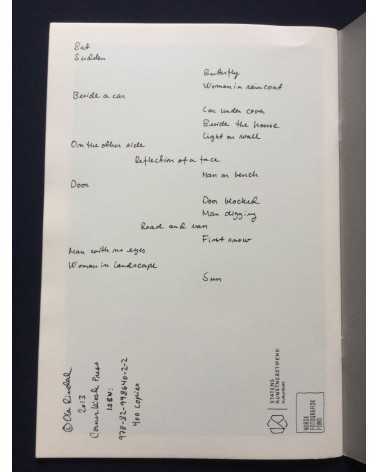 Exit
Sudden
Butterfly
Woman in raincoat
Beside a car
Car under cover
Beside the house
Light on wall
On the other side
Reflection of a face
Man on bench
Door
Door blocked
Man digging
Road and van
First snow
Man with no eyes
Woman in landscape
Sun
© Ola Rindal
2013
Press
ISBN:
978-82-998640-2-2
400 Copies
STATENS
KUNSTNERSTIPEND
NORSK
FOTOGRAFISK
FOND